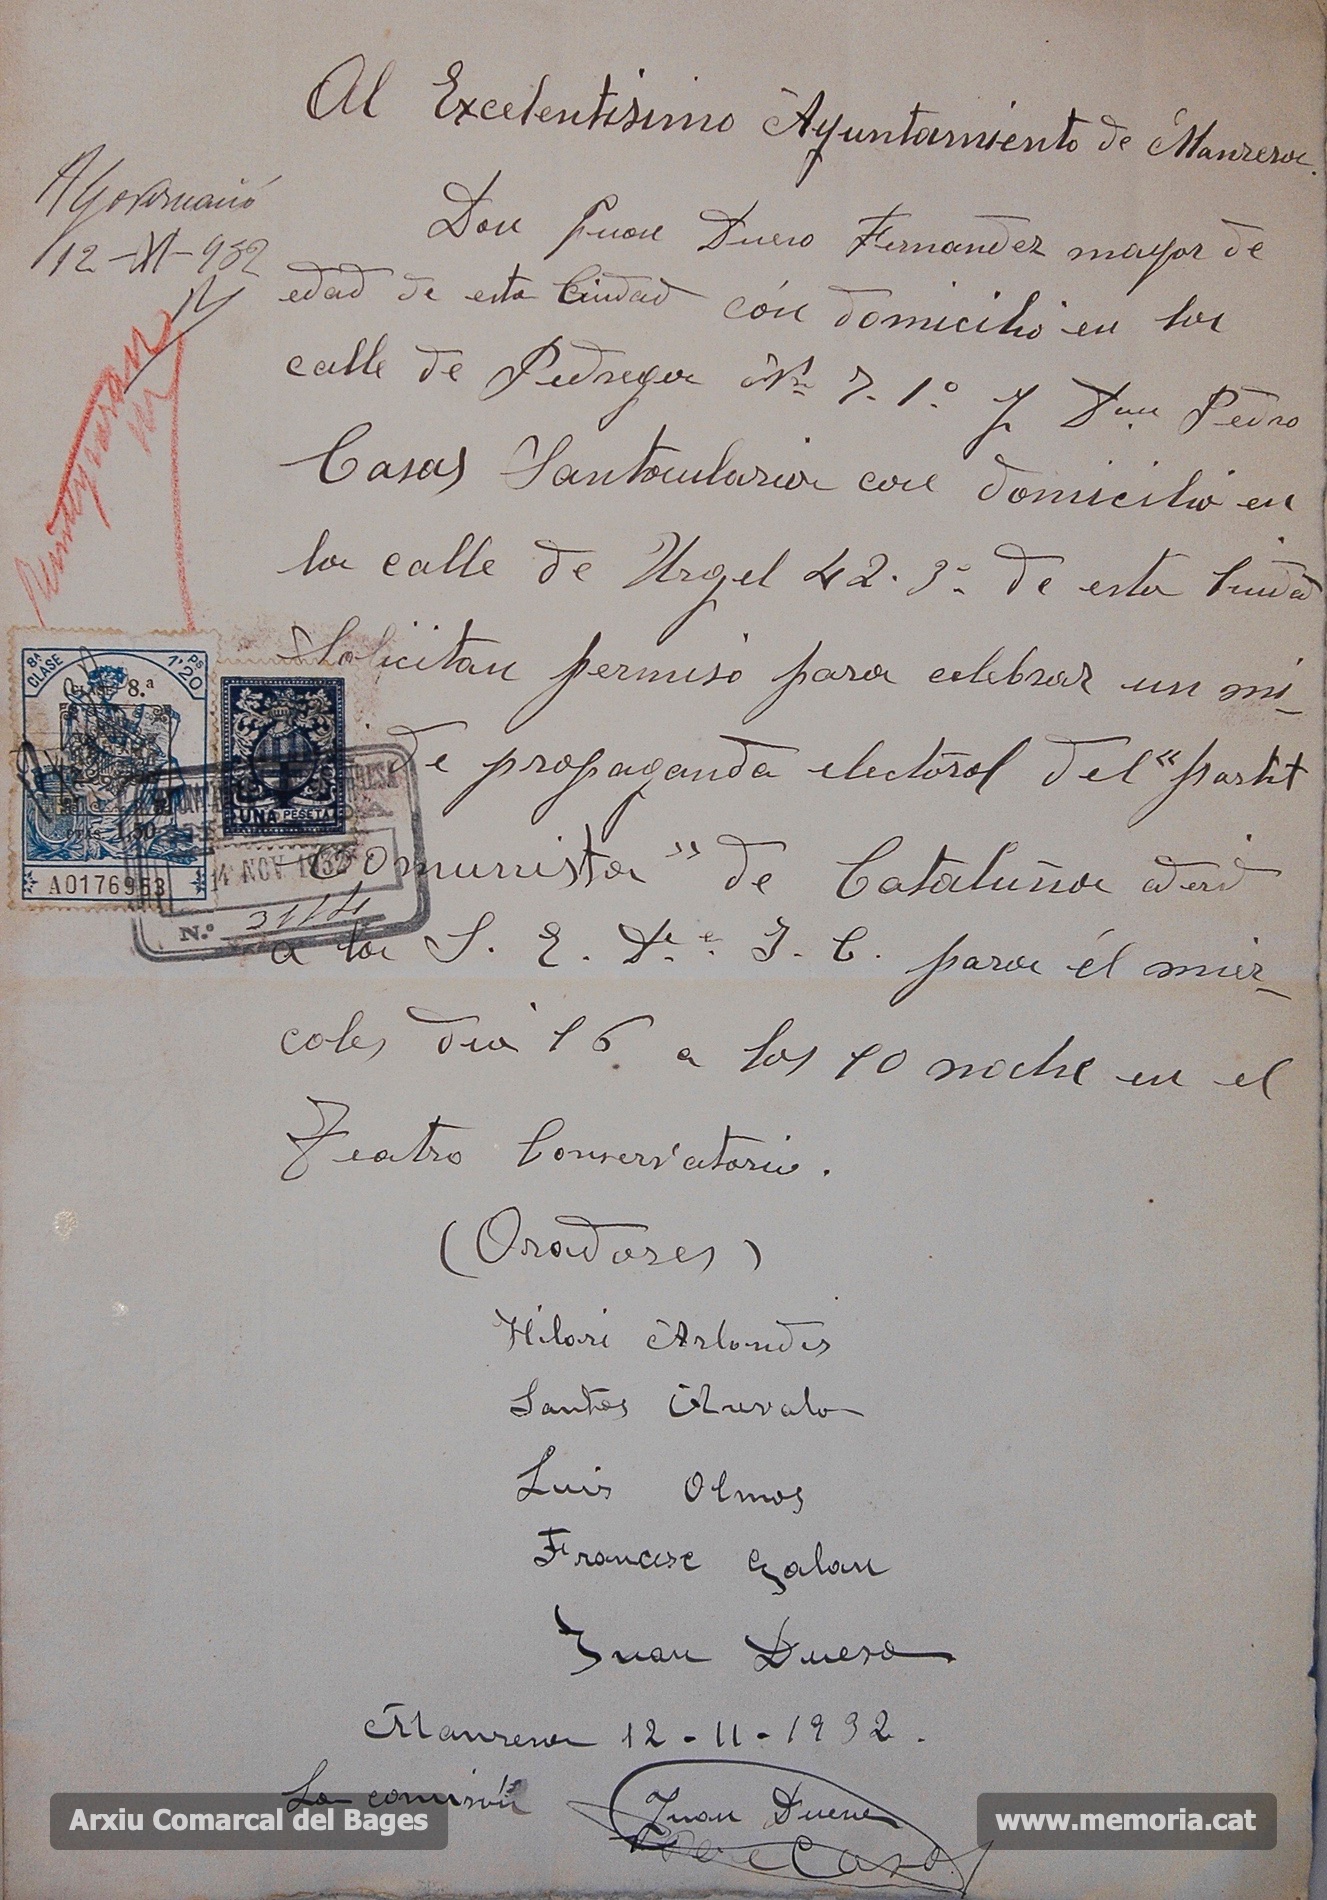 Al Excelentisimo Ayuntamiento de Manresa.
A Governació
12-XI-932
Don Juan Duero Fernandez mayor de
edad de esta Ciudad con domicilio en la
calle de Pedregar Nº 7. 1.º y Don Pedro
Casas Santaularia con domicilio en
la calle de Urgel 42. 3º de esta Ciudad
Solicitan permiso para celebrar un mi-
de propaganda electoral del "partit
Comunista" de Cataluña aderid
a la S. E. De e I. C. para él mier-
coles dia 16 a las 10 noche en el
Teatro Conservatorio.
(Oradores)
Hilari Arlandis
Santos
Luis Olmos
Francisc Galan
Juan Duero
Manresa 12-11-1932.
La comisión
Juan Duero
Pere Casas
8ª CLASE
1'20 PS
CLASE 8.ª
A0176953
UNA PESETA
14 NOV 1932
N.º 3114
Arxiu Comarcal del Bages
www.memoria.cat